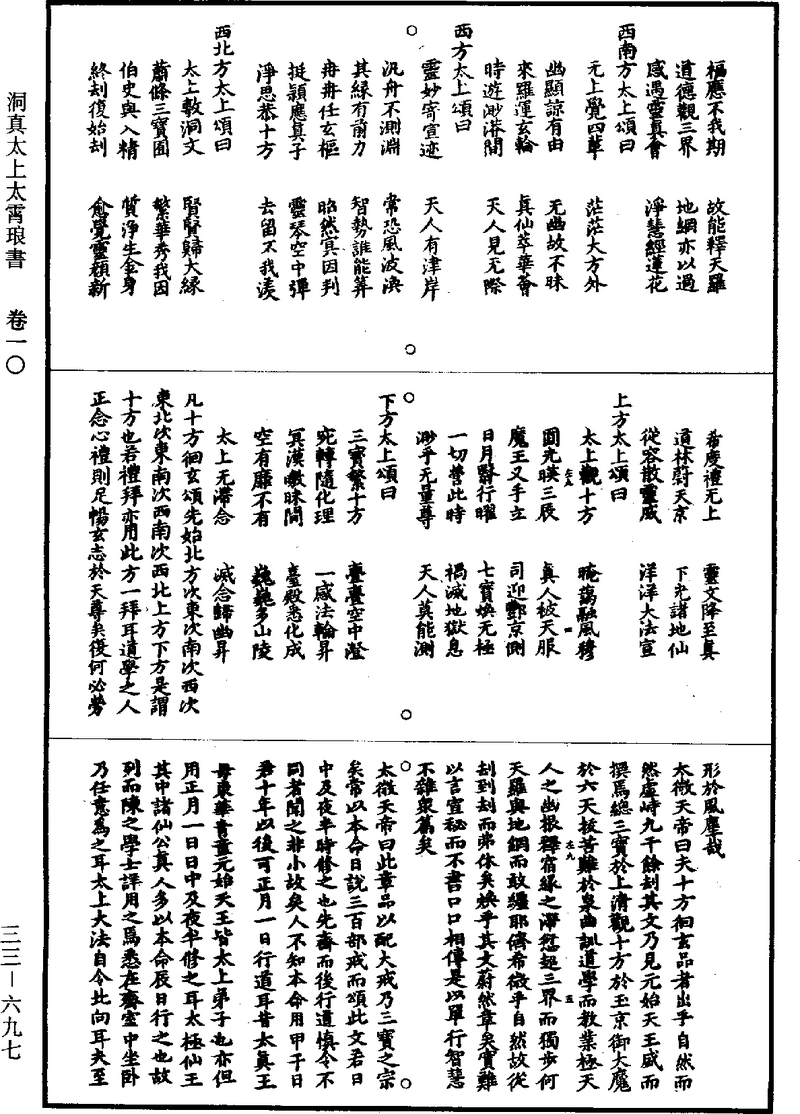 洞真太上太霄琅書　卷一〇
三三—六九七
福應不我期　故能釋天羅
道德觀三界　地網亦以過
感遇靈真會　淨慧經蓮花
西南方太上頌曰
无上覺四華　茫茫大方外
幽顯諒有由　无幽故不昧
來羅運玄輪　真仙萃華薈
時遊渺漭間　天人見无際
西方太上頌曰
靈妙寄宣迹　天人有津岸
汎舟不測淵　常恐風波渙
其緣有前力　智勢誰能筭
冉冉任玄樞　昭然冥因判
挺穎應真子　靈琴空中彈
淨思恭十方　去留不我渙
西北方太上頌曰
太上敷洞文　賢賢歸大緣
蕭條三寶囿　繁華秀我因
伯史與入精　質淨生金身
終刧復始刧　愈覺靈顏新
希慶禮无上　靈文降至真
道林蔚天京　下光諸地仙
從容散靈威　洋洋大法宣
上方太上頌曰
太上觀十方　晻藹融風穆
圓光暎三辰　真人被天服
魔王叉手立　司迎酆京側
日月翳行曜　七寶煥无極
一切營此時　禍滅地獄息
渺乎无量尊　天人莫能測
下方太上頌曰
三寶繁十方　亹亹空中澄
宛轉隨化理　一感法輪昇
冥漠曒昧間　臺殿悉化成
空有靡不有　巍巍多山陵
太上无滯念　滅念歸幽昇
凡十方徊玄頌先始北方次東次南次西次
東北次東南次西南次西北上方下方是謂
十方也若禮拜亦用此方一拜耳道學之人
正念心禮則足暢玄志於天尊矣復何必勞
形於風塵哉
太微天帝曰夫十方徊玄品者出乎自然而
然虛峙九千餘刧其文乃見元始天王感而
撰焉總三寶於上清觀十方於玉京御大魔
於六天拔苦難於泉曲訓道學而教業極天
人之幽根釋宿緣之滯愆超三界而獨步何
天羅與地網而敢纏耶儔希微乎自然故從
刧到刧而弟休矣煥乎其文蔚然章矣實難
以言宣秘而不書口口相傳是以單行智慧
不雜衆篇矣
太微天帝曰此章品以配大戒乃三寶之宗
矣常以本命日說三百部戒而頌此文若日
中及夜半時修之也先齋而後行道慎令不
同者聞之非小故矣人不知本命用甲子日
若十年以後可正月一日行道耳昔太真王
母東華青童元始天王皆太上弟子也亦但
用正月一日日中及夜半修之耳太極仙王
其中諸仙公真人多以本命辰日行之也故
列而陳之學士詳用之焉悉在齋室中坐卧
乃任意為之耳太上大法自令北向耳夫至